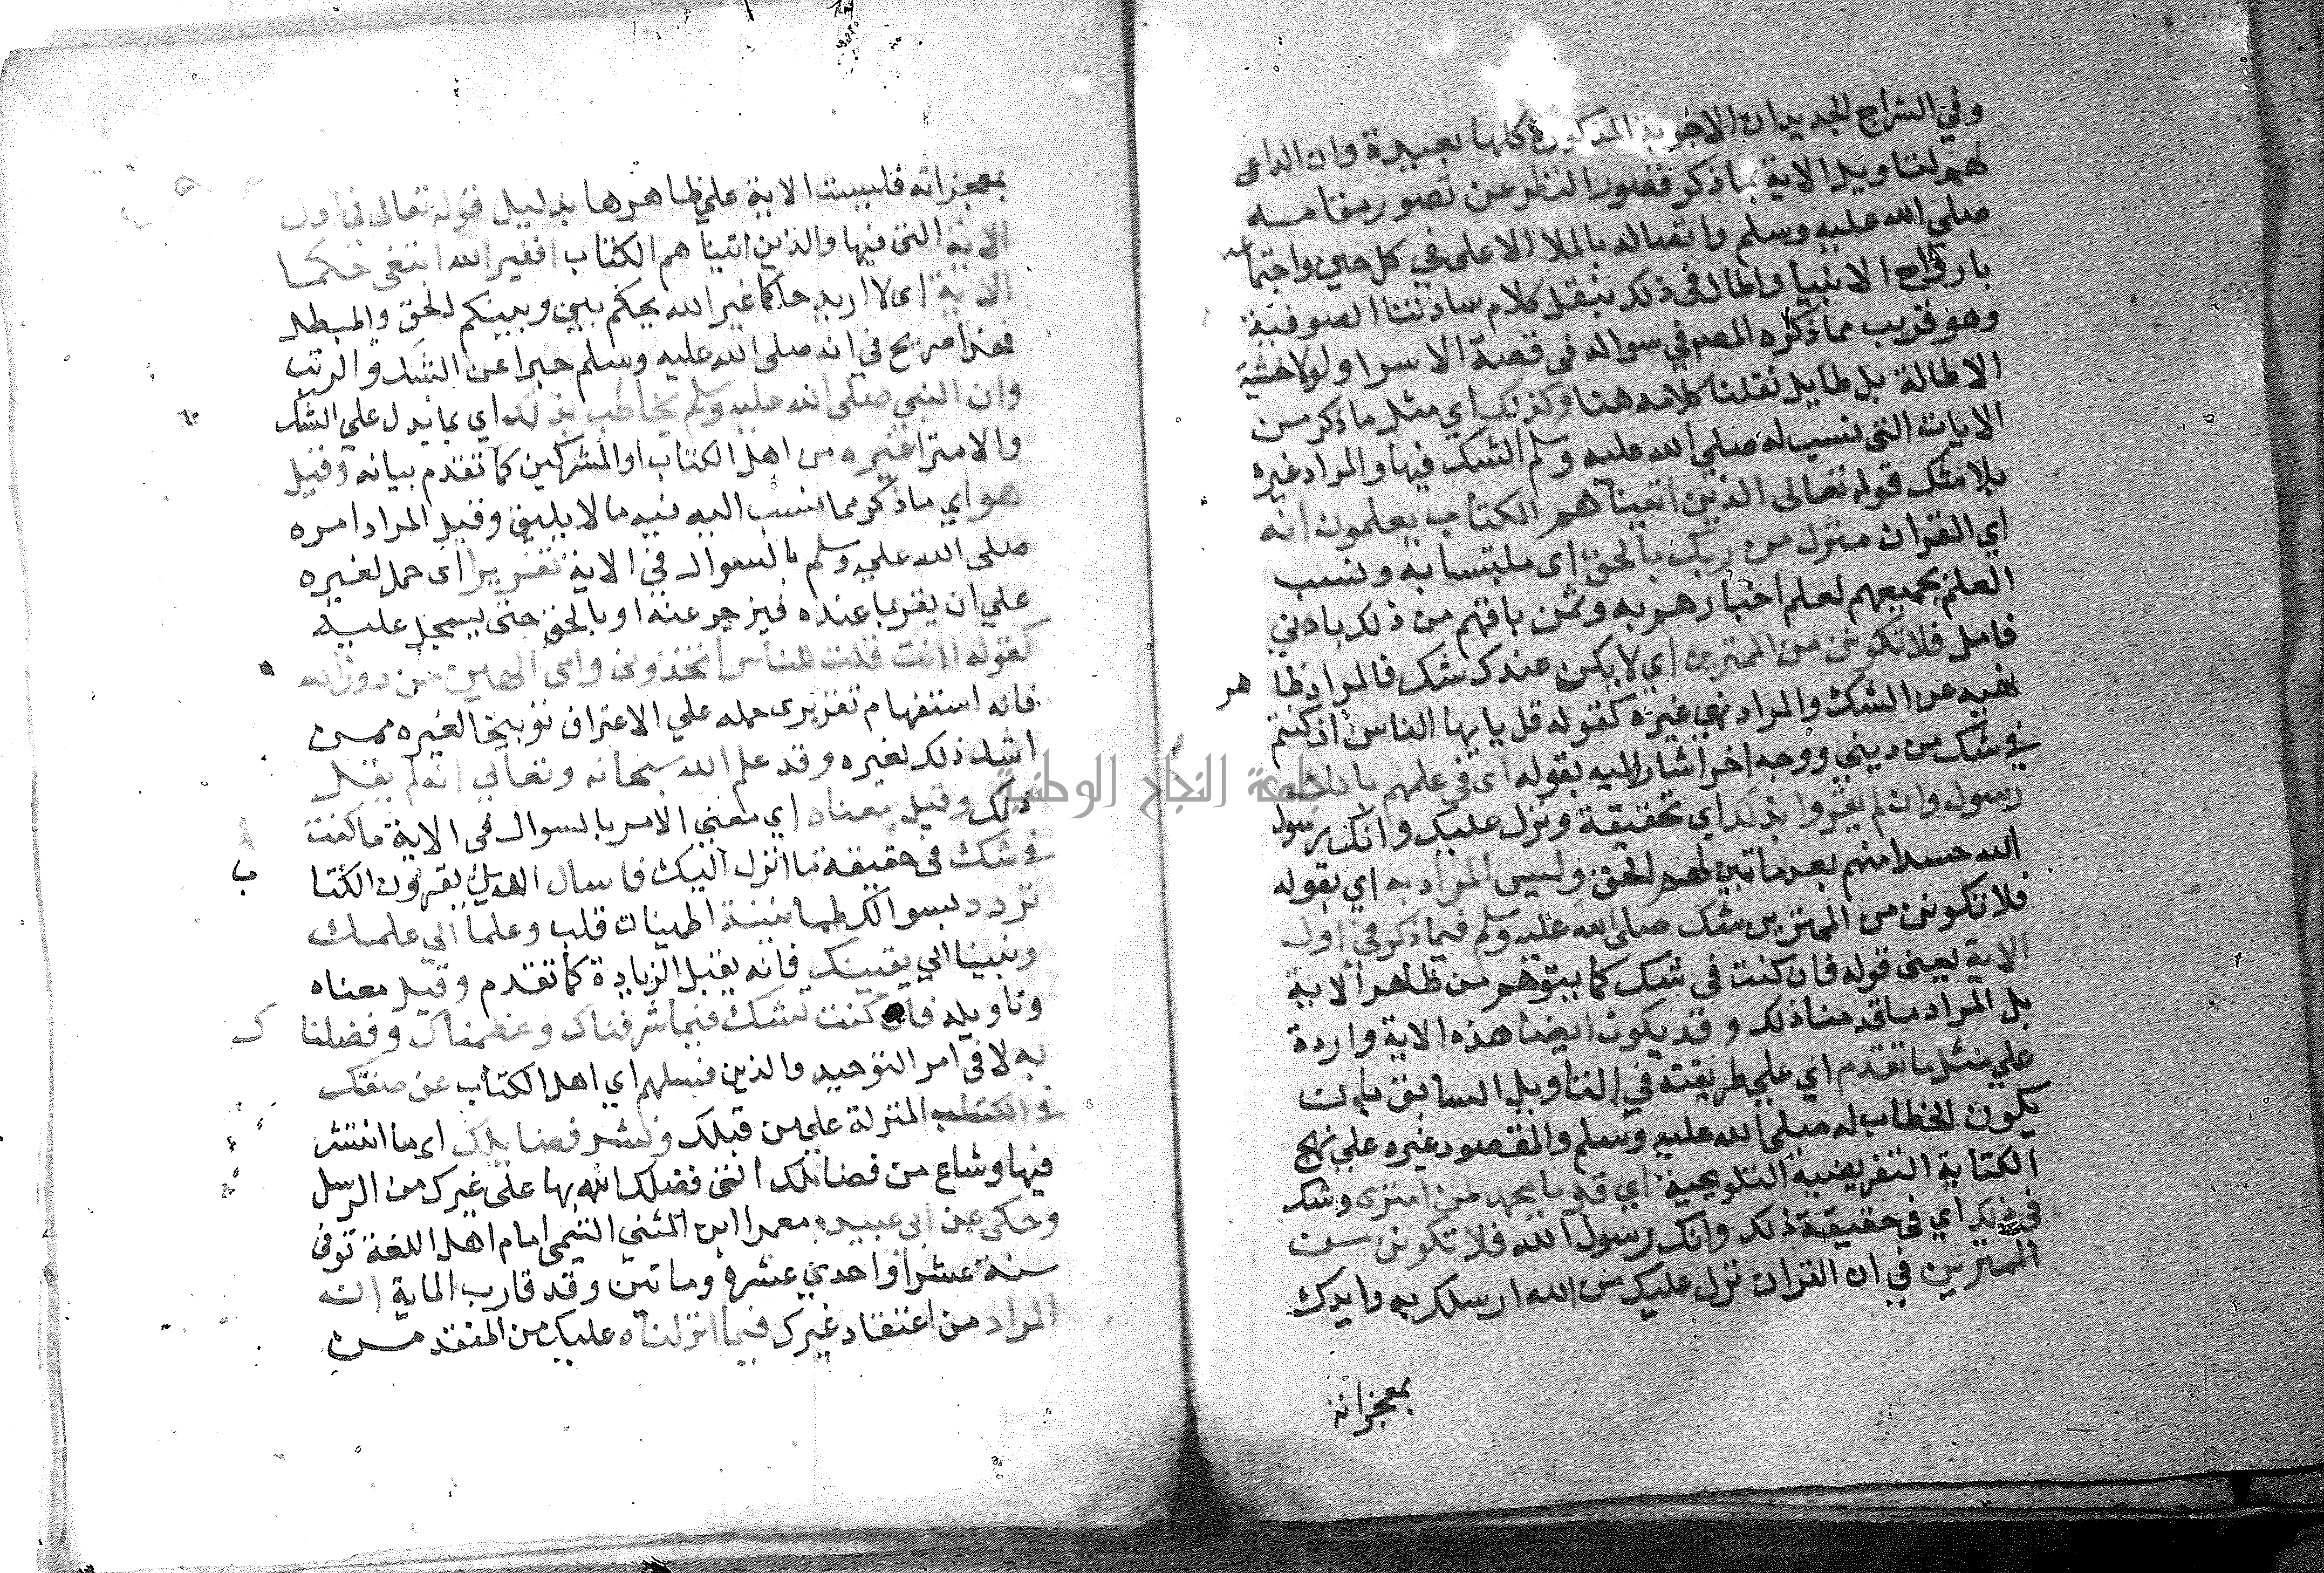 وفي السراج الجديد ان الاجوبة المذكورة كلها بعيدة وان الداعي
لهم لتاويل الاية بما ذكر قصور النظر عن تصور مقامه
صلى الله عليه وسلم واتصاله بالملا الاعلى في كل حين واجتماعه
بارواح الانبيا واطال في ذلك بنقل كلام سادتنا الصوفية
وهو قريب مما ذكره المصر في سواله في قصة الاسرا ولولا خشية
الاطالة بل طايل نقلنا كلامه هنا وكذلك اي مثل ما ذكر من
الايات التي نسب له صلى الله عليه وسلم الشك فيها والمراد غيره
بلا شك قوله تعالى الذين اتيناهم الكتاب يعلمون انه
اي القران منزل من ربك بالحق اي ملتبسا به ونسب
العلم بجميعهم لعلم احبارهم به وتمكن باقيهم من ذلك بادني
تامل فلا تكونن من الممترين اي لا يكن عندك شك فالمراد ظاهر
نهيه عن الشك والمراد نهي غيره كقوله قل يا يها الناس ان كنتم
في شك من ديني ووجه اخر اشار اليه بقوله اي في علمهم بانك
رسول وان لم يقروا بذلك اي تحقيقة ونزل عليك وانك رسول
الله حسدا منهم بعد ما تبين لهم الحق وليس المراد به اي بقوله
فلا تكونن من الممترين شك صلى الله عليه وسلم فيما ذكر في اول
الاية يعني قوله فان كنت في شك كما يتوهم من ظاهر الاية
بل المراد ما قدمنا ذلك وقد يكون ايضا هذه الاية واردة
علي مثل ما تقدم اي علي طريقته في التاويل السابق بان
يكون الخطاب له صلى الله عليه وسلم والمقصود غيره علي نهج
الكناية التعريضية التلويحية اي قل يا محمد لمن امترى وشك
في ذلك اي في حقيقة ذلك وانك رسول الله فلا تكونن من
الممترين في ان القران نزل عليك من الله ارسلك به وايدك
بمعجزاته
بمعجزاته فليست الاية علي ظاهرها بدليل قوله تعالى في اول
الاية التي فيها والذين اتيناهم الكتاب افغير الله ابتغى حكما
الاية اي لا اريد حاكما غير الله يحكم بيني وبينكم المحق والمبطل
فهذا صريح في انه صلى الله عليه وسلم مبرا عن الشك والريب
وان النبي صلى الله عليه وسلم يخاطب بذلك اي بما يدل علي الشك
والامترا غيره من اهل الكتاب او المشركين كما تقدم بيانه وقيل
هو اي ما ذكر مما نسب اليه فيه ما لا يليق وقيل المراد امره
صلى الله عليه وسلم بالسوال في الاية تقريرا اي حمل لغيره
علي ان يقر بما عنده فيزجر عنه او بالحق حتى يسجل عليه
كقوله اانت قلت للناس اتخذوني وامي الهين من دون الله
فانه استفهام تقريري حمله علي الاعتراف توبيخا لغيره ممن
اشد ذلك لغيره وقد علم الله سبحانه وتعالى انه لم يقل
ذلك وقيل معناه اي معني الامر بالسوال في الاية ما كنت
في شك في حقيقة ما انزل اليك فاسال الذين يقرون الكتاب
تزدد بسوالك طمانينة اطمينان قلب وعلما الي علمك
ويقينا الي يقينك فانه يقبل الزيادة كما تقدم وقيل معناه
وتاويله فان كنت تشك فيما شرفناك وعظمناك وفضلناك
به لا في امر التوحيد والدين فسلهم اي اهل الكتاب عن صفتك
في الكتب المنزلة علي من قبلك ونشر فضايلك اي ما انتشر
فيها وشاع من فضايلك التي فضلك الله بها علي غيرك من الرسل
وحكى عن ابي عبيدة معمرا ابن المثني التيمي امام اهل اللغة توفي
سنة عشرا واحدي عشره وماتين وقد قارب الماية ان
المراد من اعتقاد غيرك فيما انزلناه عليك من المتقد من
جامعة النجاح الوطنية